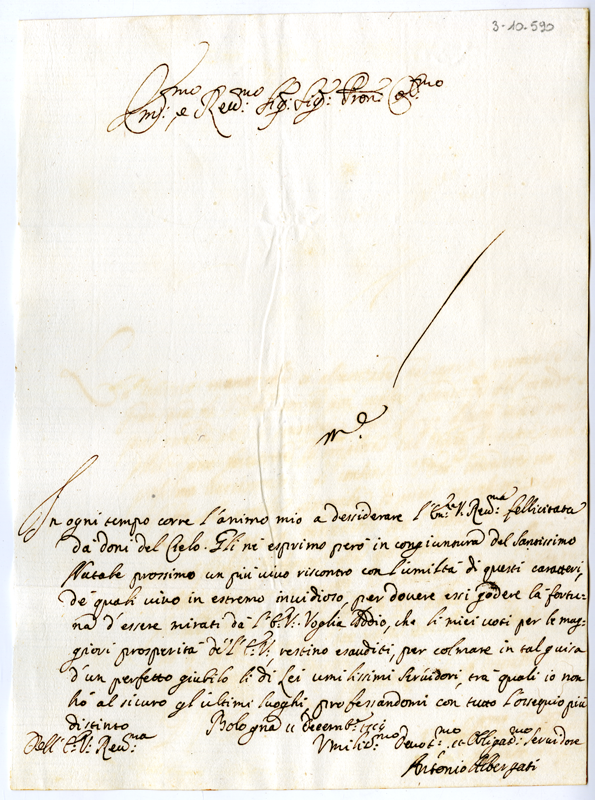 3-10-590
Em.mo e Rev.mo Sig: Sig: Pron Col.mo
In ogni tempo corre l'animo mio a dessiderare l'Em.za V. Rev.ma fellicitata
dà doni del Cielo. Gli nè esprimo però in congiuntura del Santissimo
Natale prossimo un più vivo riscontro con l'umiltà di questi caratteri,
dè quali vivo in estremo invidioso, per dovere essi godere la fortu:
na d'essere mirati da l'E.V: Voglia Iddio, che li miei voti per le mag:
giori prosperità de l'E.V: restino esauditi, per colmare in tal guisa
d'un perfetto giubilo li di Lei umilissimi servidori, trà quali io non
hò al sicuro gl'ultimi luoghi, professandomi con tutto l'ossequio più
distinto Bologna 11 Decemb.e
Dell'E.V: Rev.ma
Umiliss.mo Devot.mo et Obligad.mo Servidore
Antonio Albergati